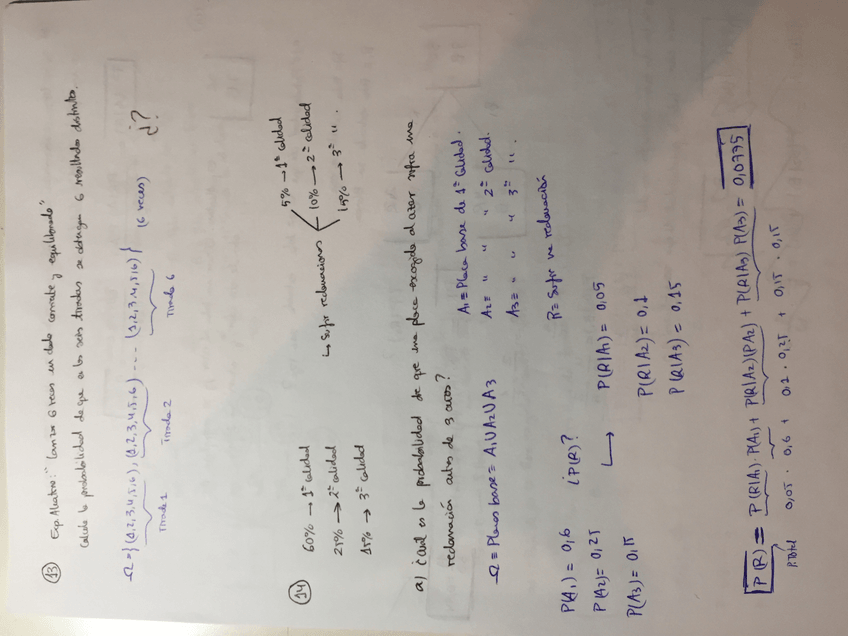 13 Exp. Aleatorio: "Lanzar 6 veces un dado corriente y equilibrado"
Calcula la probabilidad de que en las seis tiradas se obtengan 6 resultados distintos.
Ω = {(1,2,3,4,5,6), (1,2,3,4,5,6) --- (1,2,3,4,5,6)} (6 veces) ¿?
Tirada 1 Tirada 2 Tirada 6
14
60% → 1ª calidad
25% → 2ª calidad
15% → 3ª calidad
↳ Sufre reclamaciones
5% → 1ª calidad
10% → 2ª calidad
15% → 3ª "
a) ¿Cuál es la probabilidad de que una placa escogida al azar sufra una
reclamación antes de 3 años?
Ω = Placas base = A1 U A2 U A3
A1 ≡ Placa base de 1ª Calidad.
A2 ≡ " " " 2ª Calidad.
A3 ≡ " " " 3ª " .
R ≡ Sufre una reclamación
P(A1) = 0,6 ¿P(R)?
P(A2) = 0,25
P(A3) = 0,15
P(R|A1) = 0,05
P(R|A2) = 0,1
P(R|A3) = 0,15
P(R) = P(R|A1)·P(A1) + P(R|A2)(PA2) + P(R|A3) P(A3) = 0,0775
P.Total 0,05 · 0,6 + 0,1 · 0,25 + 0,15 · 0,15